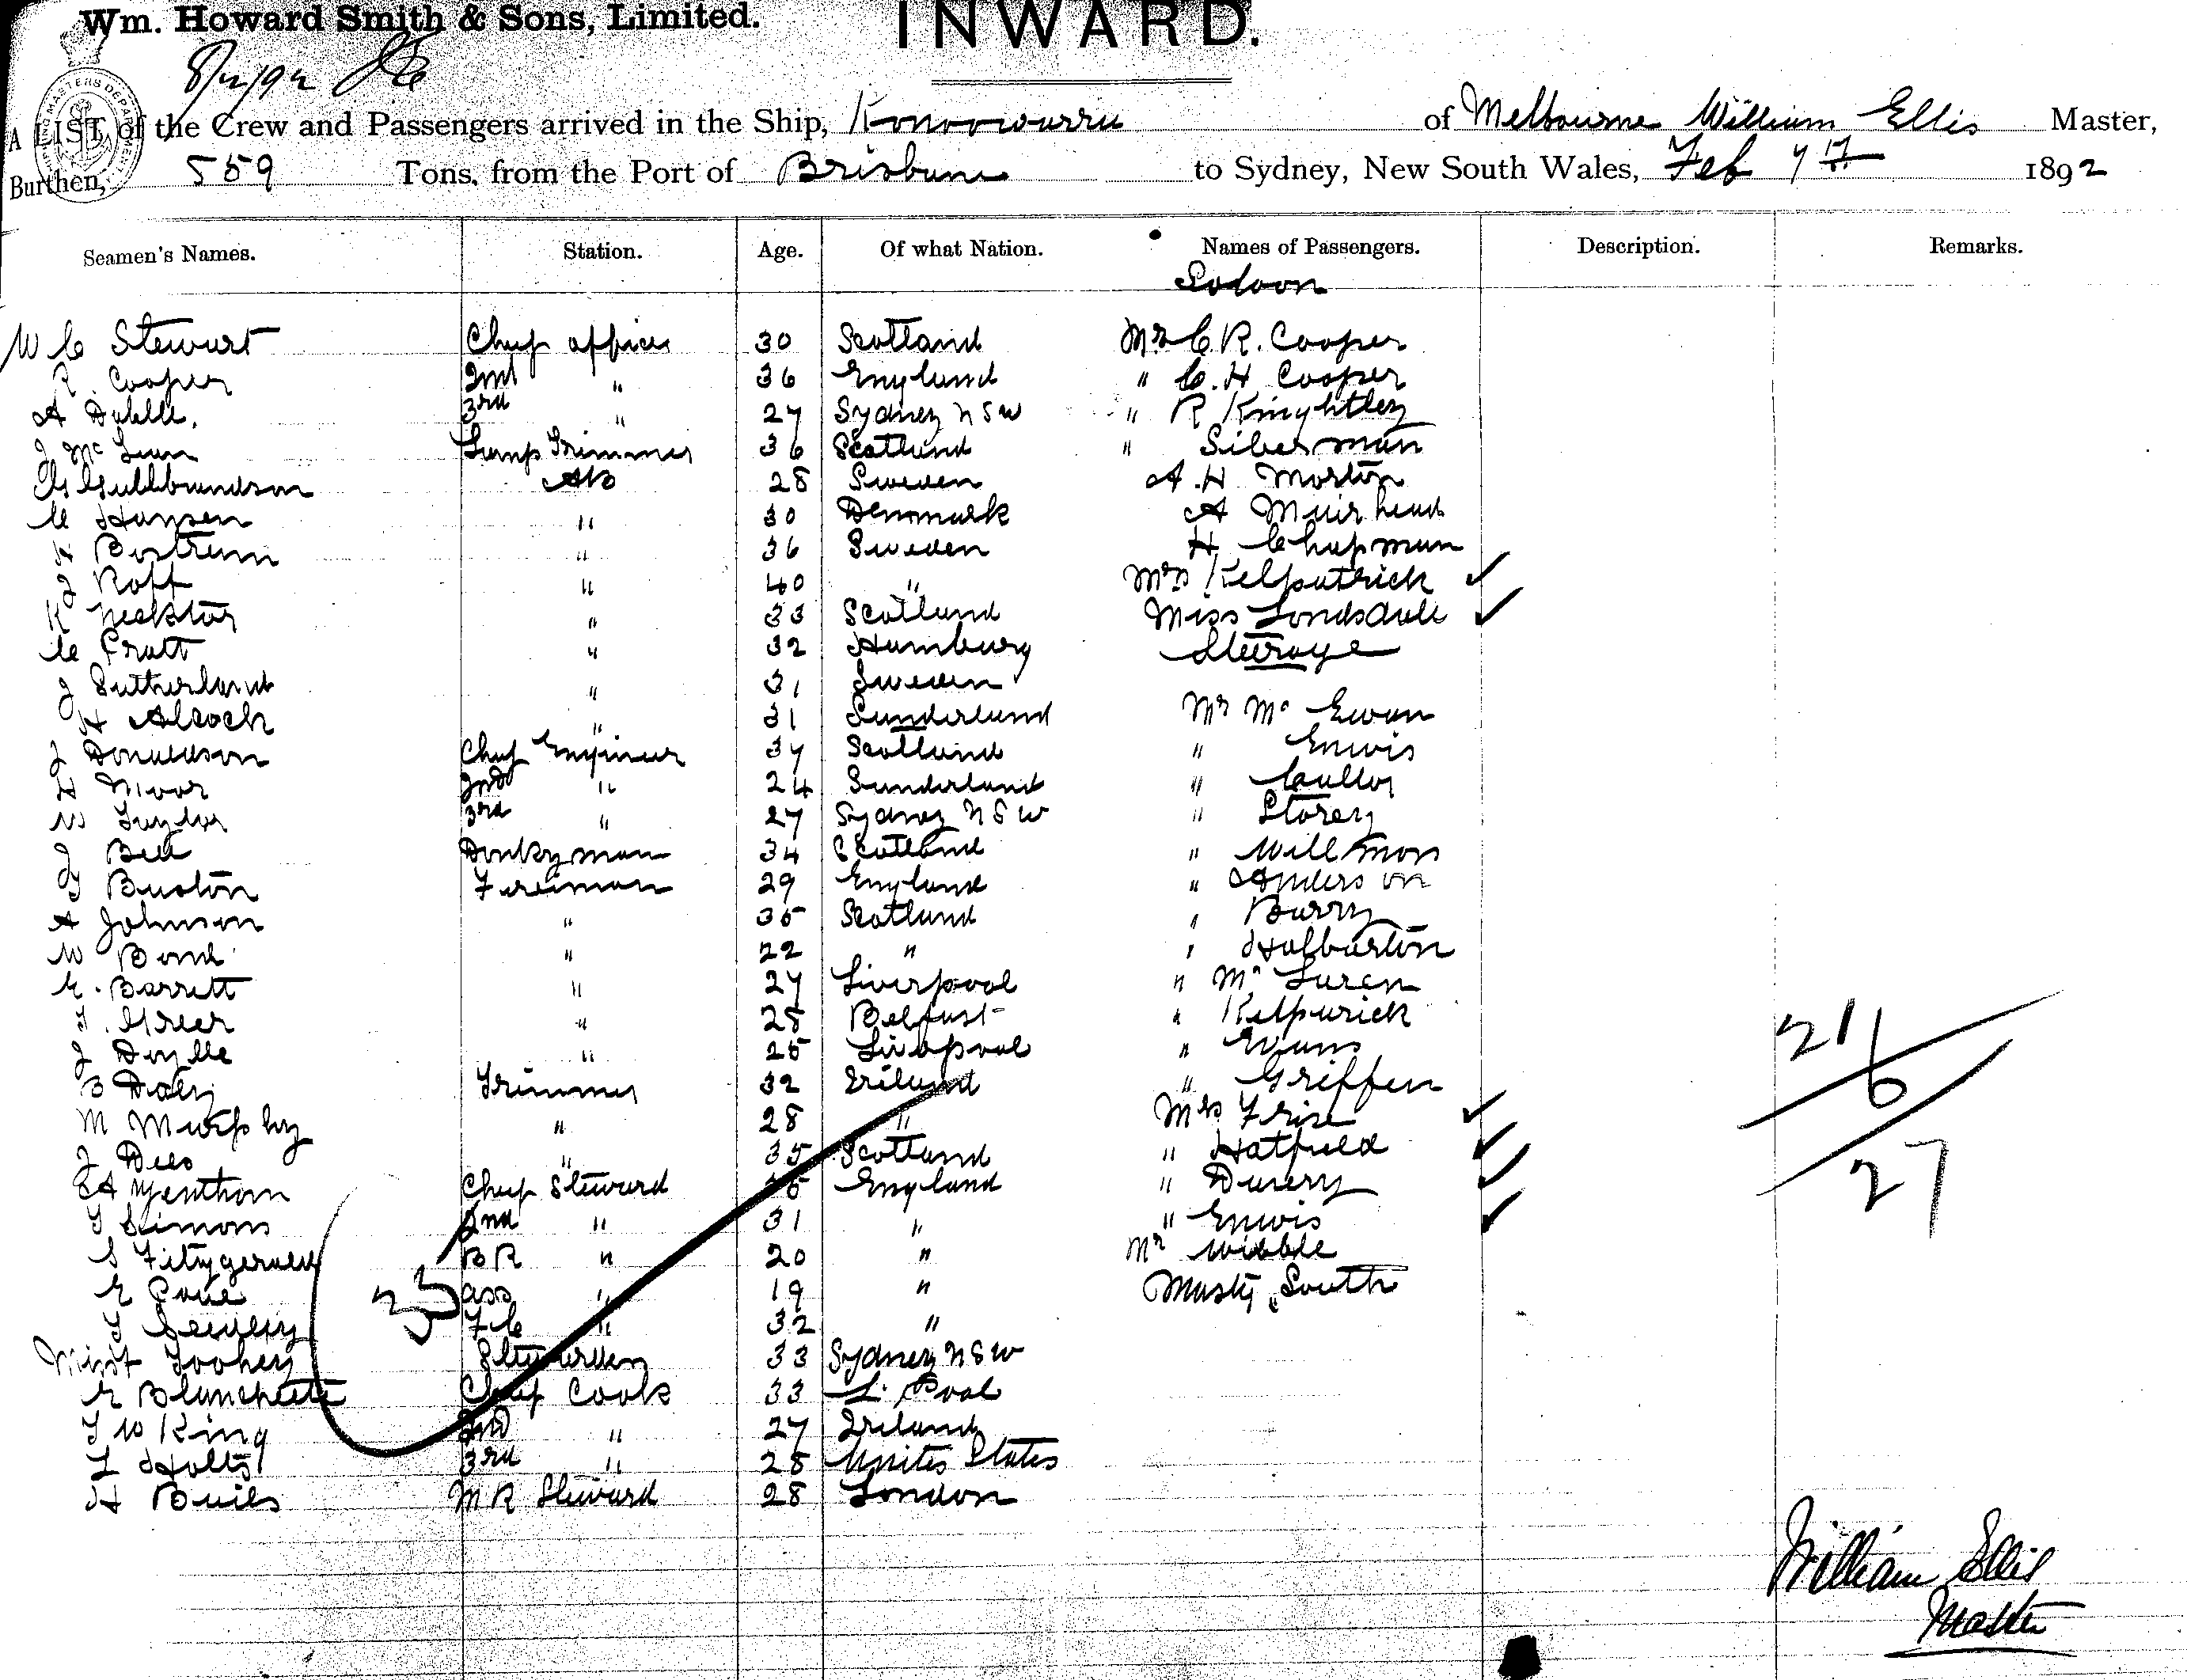 Wm. Howard Smith & Sons, Limited.
INWARD.
A LIST of the Crew and Passengers arrived in the Ship, Konoowarra of Melbourne William Ellis Master,
Burthen, 559 Tons, from the Port of Brisbane to Sydney, New South Wales, Feb 7th 1892
Seamen's Names. Station. Age. Of what Nation. Names of Passengers. Description. Remarks.
Saloon
W C Stewart Chief officer 30 Scotland Mr C. R. Cooper
R. Cooper 2nd " 36 England " C. H Cooper
A 3rd " 27 Sydney N S W " R Knightley
J McLean Lamp Trimmer 36 Scotland " Siberman
AB 28 Sweden A. H Morton
C Hansen " 30 Denmark A Muirhead
Bostrum " 36 Sweden H Chapman
J Roff " 40 " Mrs Kelpatrick
K " 33 Scotland Miss Lonsdale
C Pratt " 32 Hamburg Steerage
J Sutherland " 31 Sweden
H Alcock " 31 Sunderland Mr McEwan
J Donaldson Chief Engineer 37 Scotland " Enwis
H Moor 2nd " 24 Sunderland "
W Taylor 3rd " 27 Sydney N S W " Storey
J Bell Donkyman 34 Scotland " Willmon
Buston Fireman 29 England " Anderson
A Johnson " 35 Scotland " Barry
W Bond " 22 " " Halburton
E. Barrett " 27 Liverpool " McLaren
T. Greer " 28 Belfast " Kelparick
J Doylle " 25 Liverpool " Evans
B Daly Trimmer 32 Ireland " Griffen
M Murphy " 28 " Mrs Frise
J Dees " 35 Scotland " Hatfield
Chief Steward England " Durery
T Simons 2nd " 31 " " Enwis
S Fitzgerald BR " 20 " Mr Wibble
E Pane ass " 19 " Mastr South
F C " 32 "
Mist Toohey Stewardess 33 Sydney N S W
E Blanchette Chief Cook 33 L. Pool
T W King 2nd " 27 Ireland
Holts 3rd " 28 Unites States
H M R Steward 28 London
33
21
6
27
William Ellis
Master